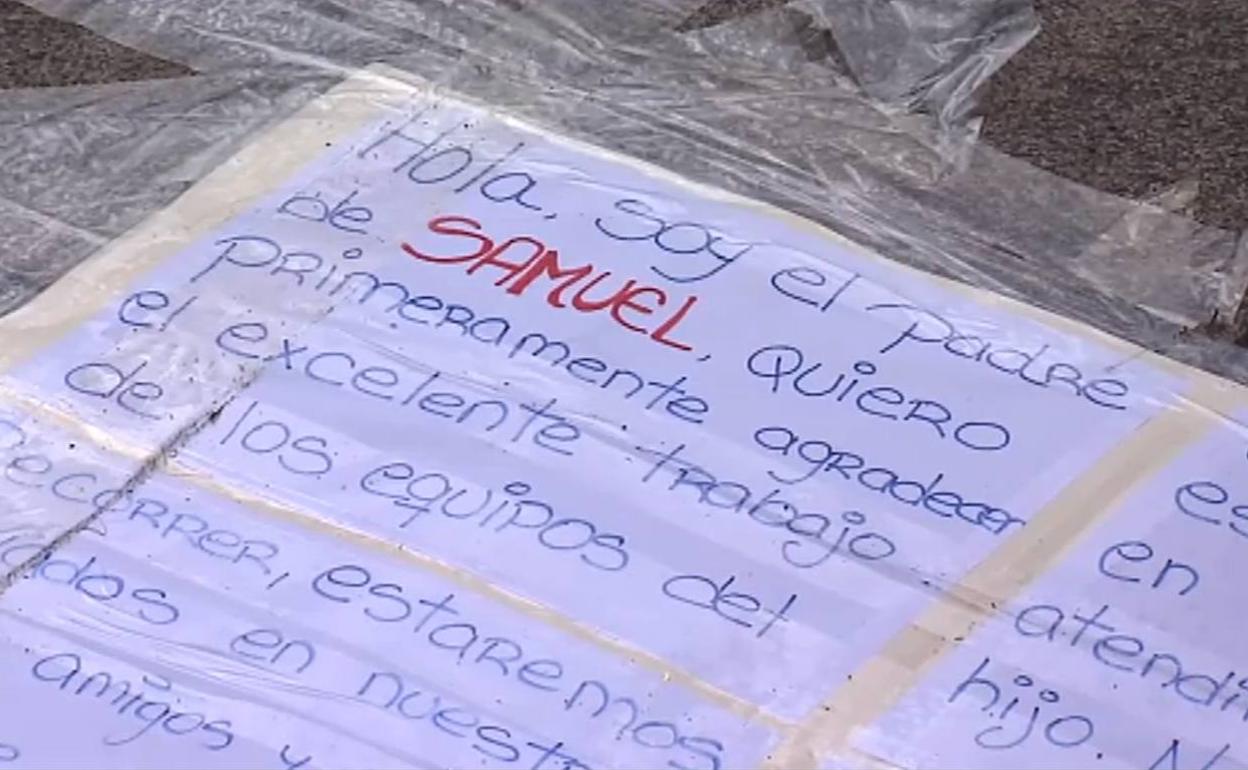 Hola, soy el padre
de SAMUEL, quiero
primeramente agradecer
el excelente trabajo
de los equipos del
recorrer, estaremos
en nuest
amigos y
es
en
atendi
hijo. N